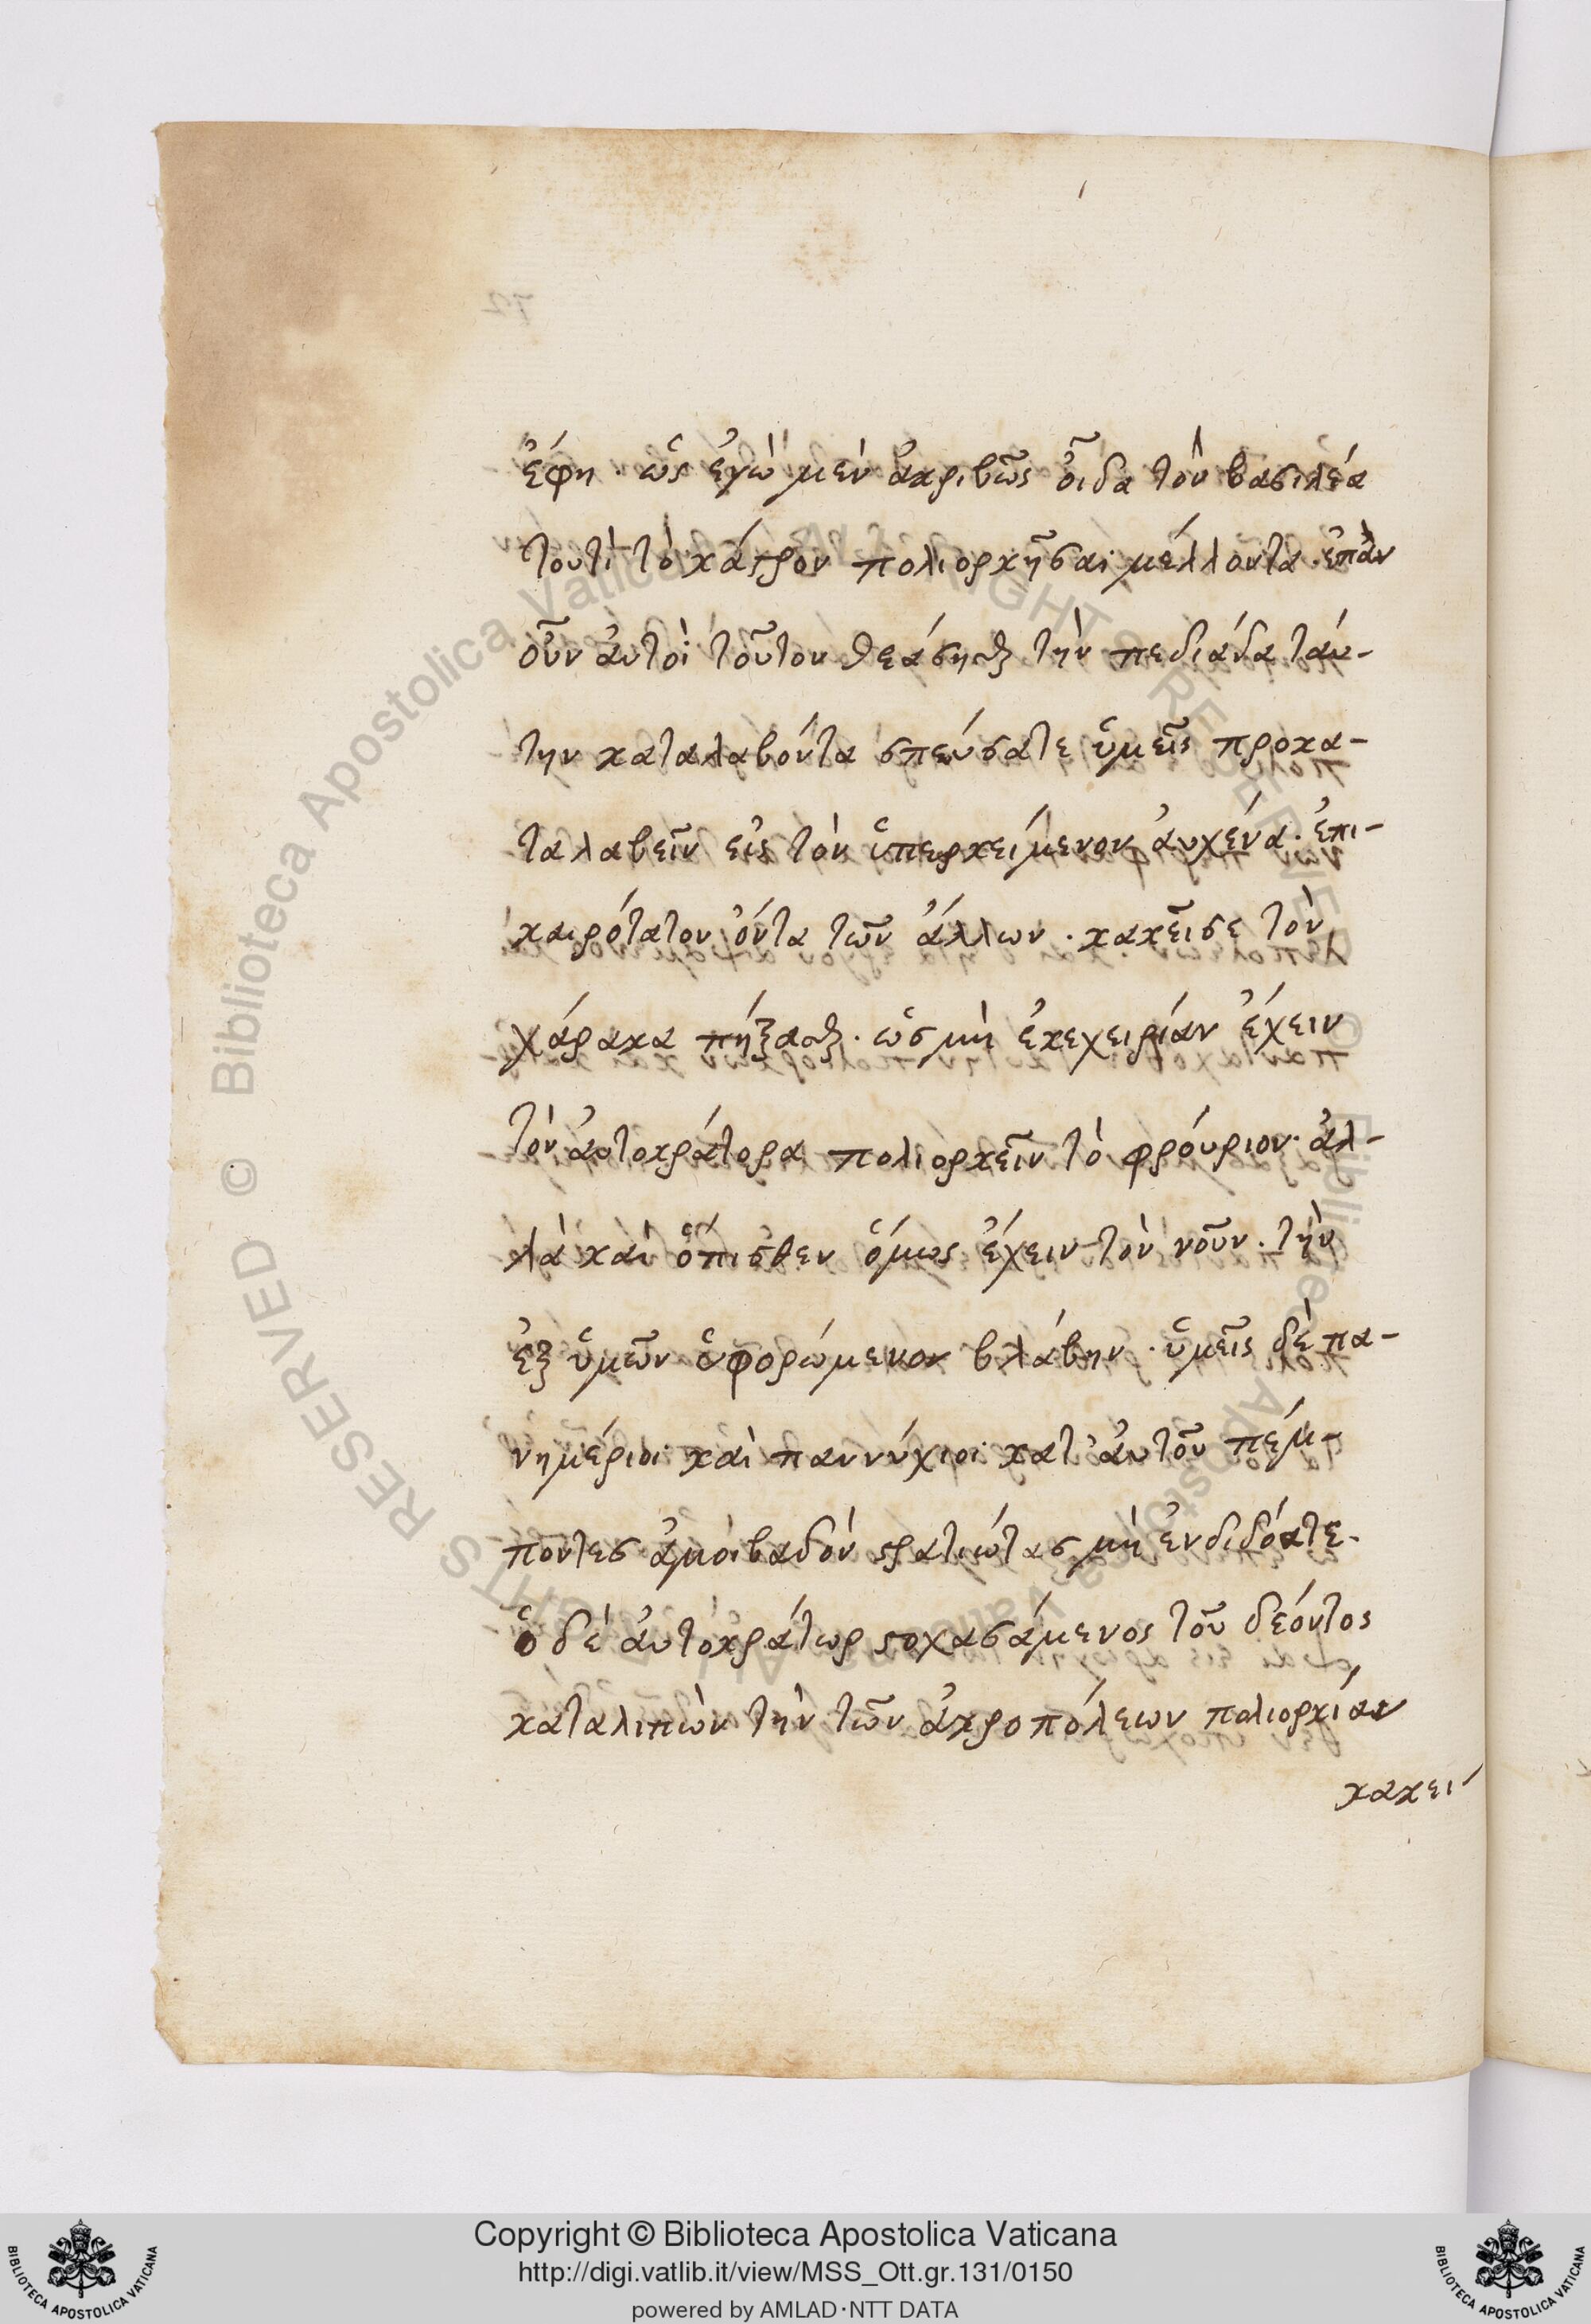 ἔφη · ὡς ἐγὼ μὲν ἀκριβῶς οἶδα τὸν βασιλέα
τουτὶ τὸ κάστρον πολιορκῆσαι μέλλοντα · ἐπὰν
οὖν αὐτοὶ τοῦτον θεάσησθε τὴν πεδιάδα ταύ-
την καταλαβόντα σπεύσατε ὑμεῖς προκα-
ταλαβεῖν εἰς τὸν ὑπερκείμενον αὐχένα · ἐπι-
καιρότατον ὄντα τῶν ἄλλων · κακεῖσε τὸν
χάρακα πήξασθε · ὡς μὴ ἐκεχειρίαν ἔχειν
τὸν αὐτοκράτορα πολιορκεῖν τὸ φρούριον · ἀλ-
λὰ καὶ ὄπισθεν ὅμως ἔχειν τὸν νοῦν · τὴν
ἐξ ὑμῶν ὑφορώμενον βλάβην · ὑμεῖς δὲ πα-
νημέριοι καὶ παννύχιοι κατ' αὐτοῦ πέμ-
ποντες ἀμοιβαδὸν στρατιώτας μὴ ἐνδιδόατε ·
ὁ δὲ αὐτοκράτωρ στοχασάμενος τοῦ δέοντος
καταλιπὼν τὴν τῶν ἀκροπόλεων πολιορκίαν
κακεί
Copyright © Biblioteca Apostolica Vaticana
http://digi.vatlib.it/view/MSS_Ott.gr.131/0150
powered by AMLAD·NTT DATA
BIBLIOTECA APOSTOLICA VATICANA
BIBLIOTECA APOSTOLICA VATICANA
© Biblioteca Apostolica Vaticana ALL RIGHTS RESERVED
© Biblioteca Apostolica Vaticana ALL RIGHTS RESERVED